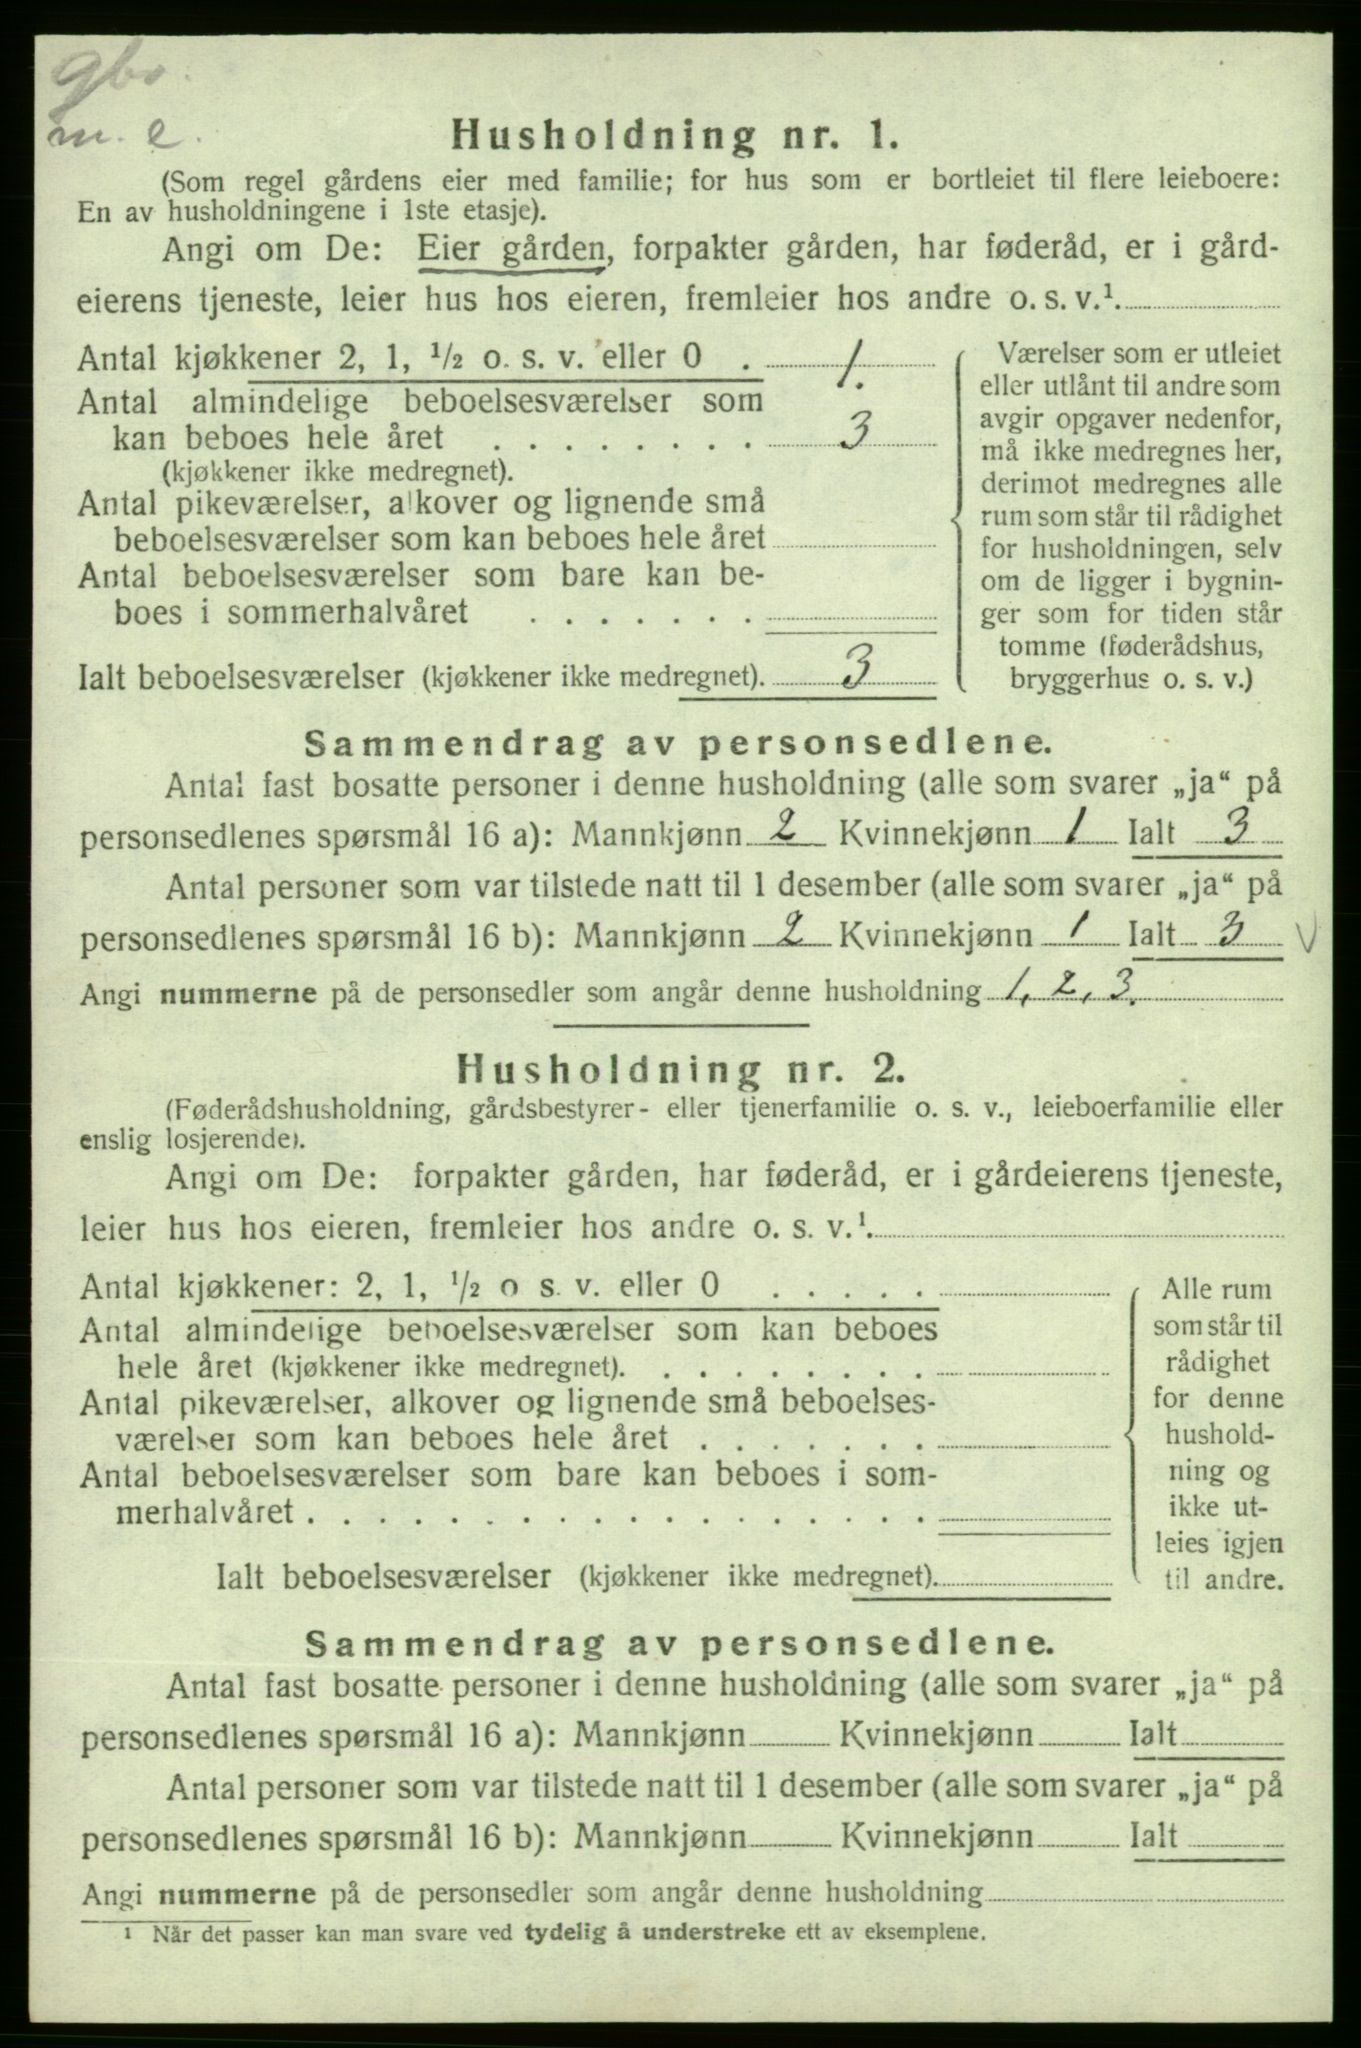 gbr.
m. e.
Husholdning nr. 1.
(Som regel gårdens eier med familie; for hus som er bortleiet til flere leieboere:
En av husholdningene i 1ste etasje).
Angi om De: Eier gården, forpakter gården, har føderåd, er i gård-
eierens tjeneste, leier hus hos eieren, fremleier hos andre o. s. v.¹.
Antal kjøkkener 2, 1, ½ o. s. v. eller 0 . 1.
Antal almindelige beboelsesværelser som
kan beboes hele året . . . . . . . . 3
(kjøkkener ikke medregnet).
Antal pikeværelser, alkover og lignende små
beboelsesværelser som kan beboes hele året
Antal beboelsesværelser som bare kan be-
boes i sommerhalvåret . . . . . . .
Ialt beboelsesværelser (kjøkkener ikke medregnet). 3
Værelser som er utleiet
eller utlånt til andre som
avgir opgaver nedenfor,
må ikke medregnes her,
derimot medregnes alle
rum som står til rådighet
for husholdningen, selv
om de ligger i bygnin-
ger som for tiden står
tomme (føderådshus,
bryggerhus o. s. v.)
Sammendrag av personsedlene.
Antal fast bosatte personer i denne husholdning (alle som svarer „ja“ på
personsedlenes spørsmål 16 a): Mannkjønn 2 Kvinnekjønn 1 Ialt 3
Antal personer som var tilstede natt til 1 desember (alle som svarer „ja“ på
personsedlenes spørsmål 16 b): Mannkjønn 2 Kvinnekjønn 1 Ialt 3 V
Angi nummerne på de personsedler som angår denne husholdning 1, 2, 3.
Husholdning nr. 2.
(Føderådshusholdning, gårdsbestyrer- eller tjenerfamilie o. s. v., leieboerfamilie eller
enslig losjerende).
Angi om De: forpakter gården, har føderåd, er i gårdeierens tjeneste,
leier hus hos eieren, fremleier hos andre o. s. v.¹.
Antal kjøkkener: 2, 1, ½ o s. v. eller 0 . . . . .
Antal almindelige beboelsesværelser som kan beboes
hele året (kjøkkener ikke medregnet). . . . . . . . .
Antal pikeværelser, alkover og lignende små beboelses-
værelser som kan beboes hele året . . . . . . .
Antal beboelsesværelser som bare kan beboes i som-
merhalvåret . . . . . . . . . . . . . . . . . .
Ialt beboelsesværelser (kjøkkener ikke medregnet).
Alle rum
som står til
rådighet
for denne
hushold-
ning og
ikke ut-
leies igjen
til andre.
Sammendrag av personsedlene.
Antal fast bosatte personer i denne husholdning (alle som svarer „ja“ på
personsedlenes spørsmål 16 a): Mannkjønn Kvinnekjønn Ialt
Antal personer som var tilstede natt til 1 desember (alle som svarer „ja“ på
personsedlenes spørsmål 16 b): Mannkjønn Kvinnekjønn Ialt
Angi nummerne på de personsedler som angår denne husholdning
¹ Når det passer kan man svare ved tydelig å understreke ett av eksemplene.